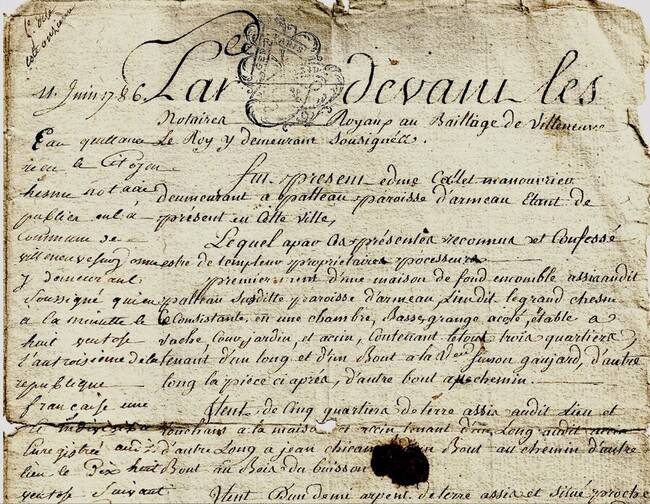 11 Juin 1786.
Par devant les
Notaires Royaux au Bailliage de Villeneuve
Le Roy y demeurant soussignés.
fut present edme Collet manouvrier
demeurant a palteau paroisse d'armeau Etant de
present en Cette ville,
Lequel apar Ces presentes reconnu et Confessé
estre detempteur proprietaires processeurs
premierement d'une maison de fond encomble assis audit
palteau susditte paroisse d'armeau Lieudit legrand chesne
Consistante en une chambre, Basse grange acosté, étable a
vache, Cour, jardin, et acin, Contenant letout trois quartiers,
tenant d'un long et d'un Bout a la gaujard, d'autre
long la pièce ci après, d'autre bout au chemin.
Item de Cinq quartiers de terre assis audit Lieu et
touchans a la maison et acin tenant d'un Long audit acin
d'autre Long a jean Bout au chemin d'autre
Bout au Bois du buisson
Item D'un demi arpent de terre assis et situé proche
rieu le Citoyen
hesme notaire
publier
Commune de
villeneuve sur yonne
y demeurant
soussigné qui en
a la minutte le
huit ventose
l'an troisieme de la
republique
française une
et indivisible
Enregistré audit
lieu le Dix huit
ventose suivant